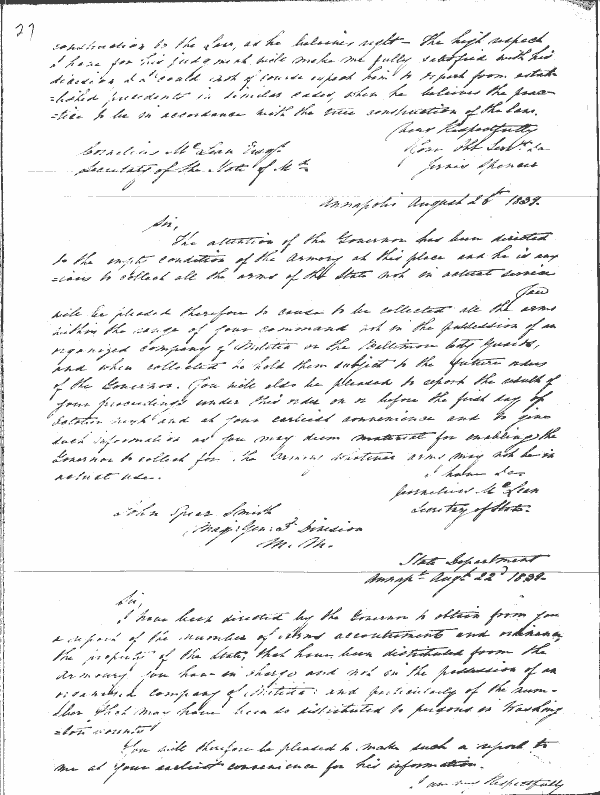 27
construction to the Law, as he believes right – the high respect
I have for his judgment will make me fully satisfied with his
decision & I could not of course expect him to depart from estab
=lished precedents in similar cases, when he believes the prac=
=tice to be in accordance with the true construction of the law.
Very Respectfully
Your Obt Servt &c
Jervis Spencer
Cornelius McLean Esqr
Secretary of the State of Md
Annapolis August 26th 1839.
Sir,
The attention of the Governor has been directed
to the empty condition of the Armory at this place and he is anx
=ious to collect all the arms of the State not in actual service
You
will be pleased therefore to cause to be collected all the arms
within the range of your command not in the possession of an
organized company of Militia or the Baltimore City Guards,
and when collected to hold them subject to the future orders
of the Governor. You will also be pleased to report the result of
your proceedings under this order on or before the first day of
October next and at your earliest convenience and to give
such information as you may deem material for enabling the
Governor to collect for the Armory whatever arms may not be in
actual use.
I have &c
Cornelius McLean
Secretary of State.
John Spear Smith
Maj: Gen: 3d Division
M. M.
State Department
Annaps Augt 22d 1839.
Sir,
I have been directed by the Governor to obtain from you
a report of the number of Arms accoutrements and ordnance
the property of the State, that have been distributed from the
armoury you have in charge and not in the possession of an
organized company of Militia: and particularly of the num-
=ber that may have been so distributed to persons in Washing
=ton county.
You will therefore be pleased to make such a report to
me at your earliest convenience for his information.
I am very Respectfully